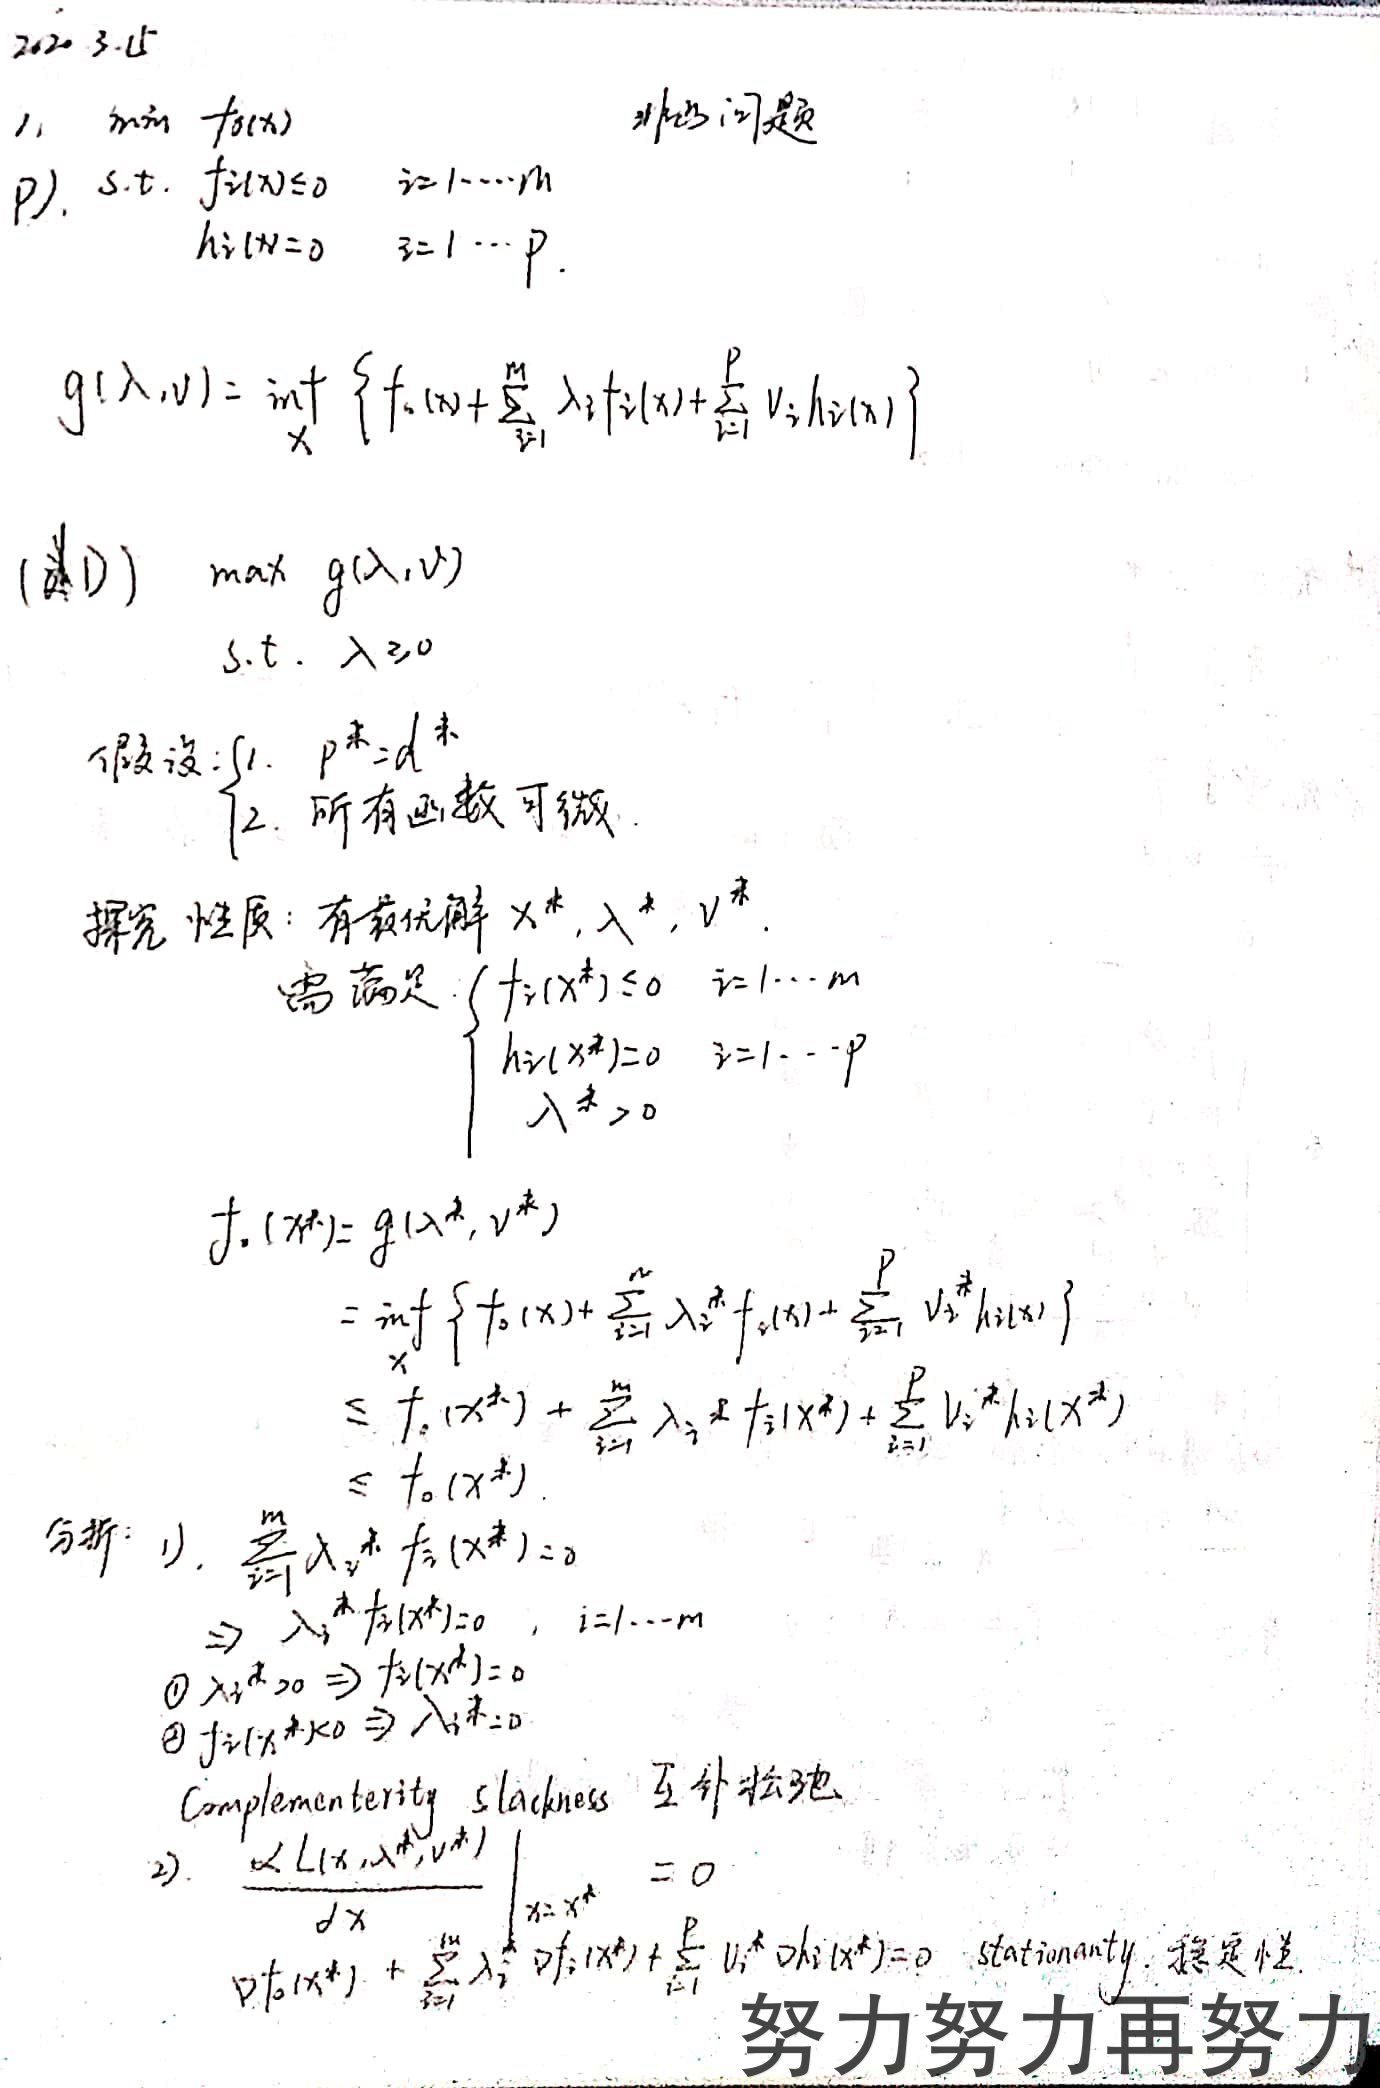 2020.3.15
1. min f₀(x) 非凸问题
P). s.t. fᵢ(x)≤0 i=1····m
hᵢ(x)=0 i=1···p.
g(λ,ν)= inf_x {f₀(x)+∑_{i=1}^m λᵢfᵢ(x)+∑_{i=1}^p νᵢhᵢ(x)}
(D) max g(λ,ν)
s.t. λ≥0
假设:{1. p*=d*
2. 所有函数可微.
探究性质: 有最优解 x*, λ*, ν*.
需满足:{fᵢ(x*)≤0 i=1···m
hᵢ(x*)=0 i=1···p
λ*>0
f₀(x*)= g(λ*,ν*)
= inf_x {f₀(x)+∑_{i=1}^m λᵢ*fᵢ(x)+∑_{i=1}^p νᵢ*hᵢ(x)}
≤ f₀(x*)+∑_{i=1}^m λᵢ*fᵢ(x*)+∑_{i=1}^p νᵢ*hᵢ(x*)
≤ f₀(x*).
分析: 1). ∑_{i=1}^m λᵢ*fᵢ(x*)=0
⇒ λᵢ*fᵢ(x*)=0 , i=1···m
① λᵢ*>0 ⇒ fᵢ(x*)=0
② fᵢ(x*)<0 ⇒ λᵢ*=0
Complementerity slackness 互补松弛
2). dL(x,λ*,ν*)/dx |_{x=x*} =0
∇f₀(x*)+∑_{i=1}^m λᵢ*∇fᵢ(x*)+∑_{i=1}^p νᵢ*∇hᵢ(x*)=0 stationanty. 稳定性.
努力努力再努力